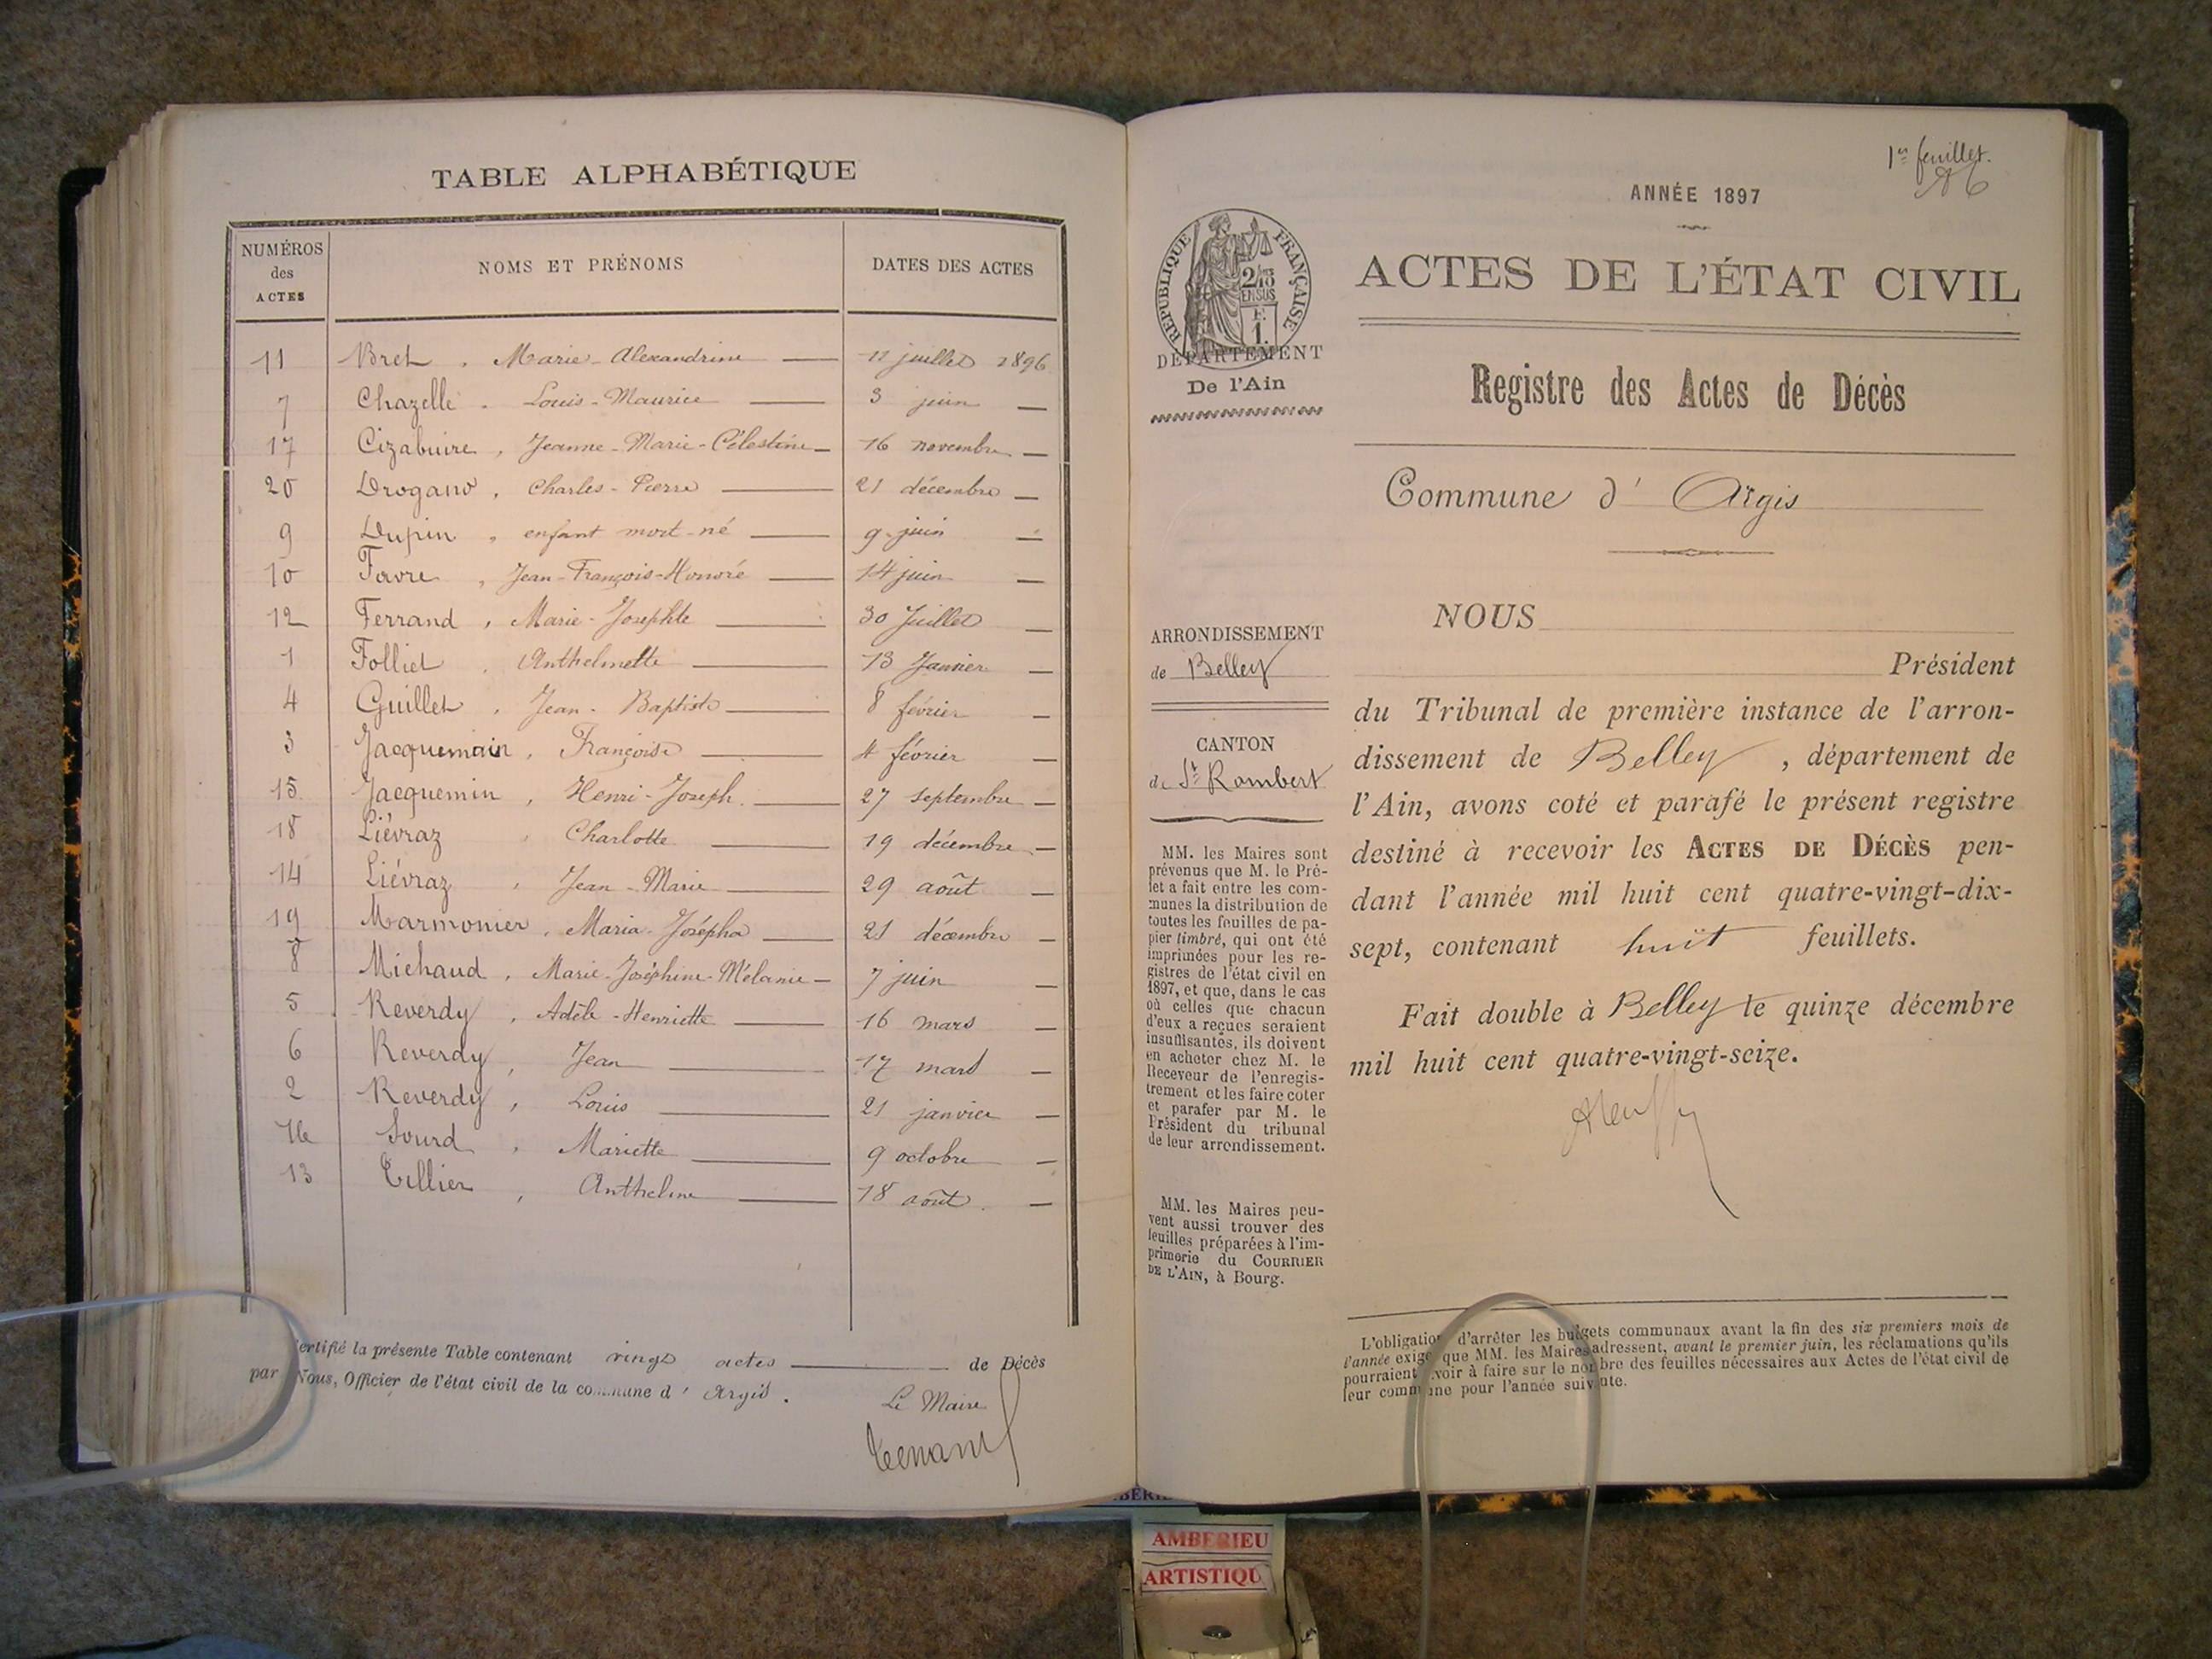 TABLE ALPHABÉTIQUE
NUMÉROS des ACTES NOMS ET PRÉNOMS DATES DES ACTES
11 Bret, Marie-Alexandrine — 11 juillet 1896
7 Chazelle, Louis-Maurice — 3 juin —
17 Cizabuire, Jeanne-Marie-Célestine — 16 novembre —
20 Drogand, Charles-Pierre — 21 décembre —
9 Dupin, enfant mort-né — 9 juin —
10 Favre, Jean-François-Honoré — 14 juin —
12 Ferrand, Marie-Josephte — 30 Juillet —
1 Folliet, Anthelmette — 13 Janvier —
4 Guillet, Jean-Baptiste — 8 février —
3 Jacquemain, Françoise — 4 février —
15 Jacquemin, Henri-Joseph — 27 septembre —
18 Liévraz, Charlotte — 19 décembre —
14 Liévraz, Jean-Marie — 29 août —
19 Marmonier, Maria-Josépha — 21 décembre —
8 Michaud, Marie-Joséphine-Mélanie — 7 juin —
5 Reverdy, Adèle-Henriette — 16 mars —
6 Reverdy, Jean — 17 mars —
2 Reverdy, Louis — 21 janvier —
16 Sourd, Mariette — 9 octobre —
13 Tillier, Anthelme — 18 août —
ertifié la présente Table contenant vingt actes — de Décès
par Nous, Officier de l'état civil de la commune d' Argis.
Le Maire
Tenand
1er feuillet.
ANNÉE 1897
RÉPUBLIQUE FRANÇAISE
2/10 EN SUS
F. 1.
DÉPARTEMENT
De l'Ain
ARRONDISSEMENT
de Belley
CANTON
de St Rambert
MM. les Maires sont
prévenus que M. le Pré-
fet a fait entre les com-
munes la distribution de
toutes les feuilles de pa-
pier timbré, qui ont été
imprimées pour les re-
gistres de l'état civil en
1897, et que, dans le cas
où celles que chacun
d'eux a reçues seraient
insuffisantes, ils doivent
en acheter chez M. le
Receveur de l'enregis-
trement et les faire coter
et parafer par M. le
Président du tribunal
de leur arrondissement.
MM. les Maires peu-
vent aussi trouver des
feuilles préparées à l'im-
primerie du COURRIER
DE L'AIN, à Bourg.
ACTES DE L'ÉTAT CIVIL
Registre des Actes de Décès
Commune d' Argis
NOUS
Président
du Tribunal de première instance de l'arron-
dissement de Belley, département de
l'Ain, avons coté et parafé le présent registre
destiné à recevoir les ACTES DE DÉCÈS pen-
dant l'année mil huit cent quatre-vingt-dix-
sept, contenant huit feuillets.
Fait double à Belley le quinze décembre
mil huit cent quatre-vingt-seize.
L'obligation d'arrêter les budgets communaux avant la fin des six premiers mois de
l'année exige que MM. les Maires adressent, avant le premier juin, les réclamations qu'ils
pourraient avoir à faire sur le nombre des feuilles nécessaires aux Actes de l'état civil de
leur commune pour l'année suivante.
AMBERIEU
ARTISTIQU